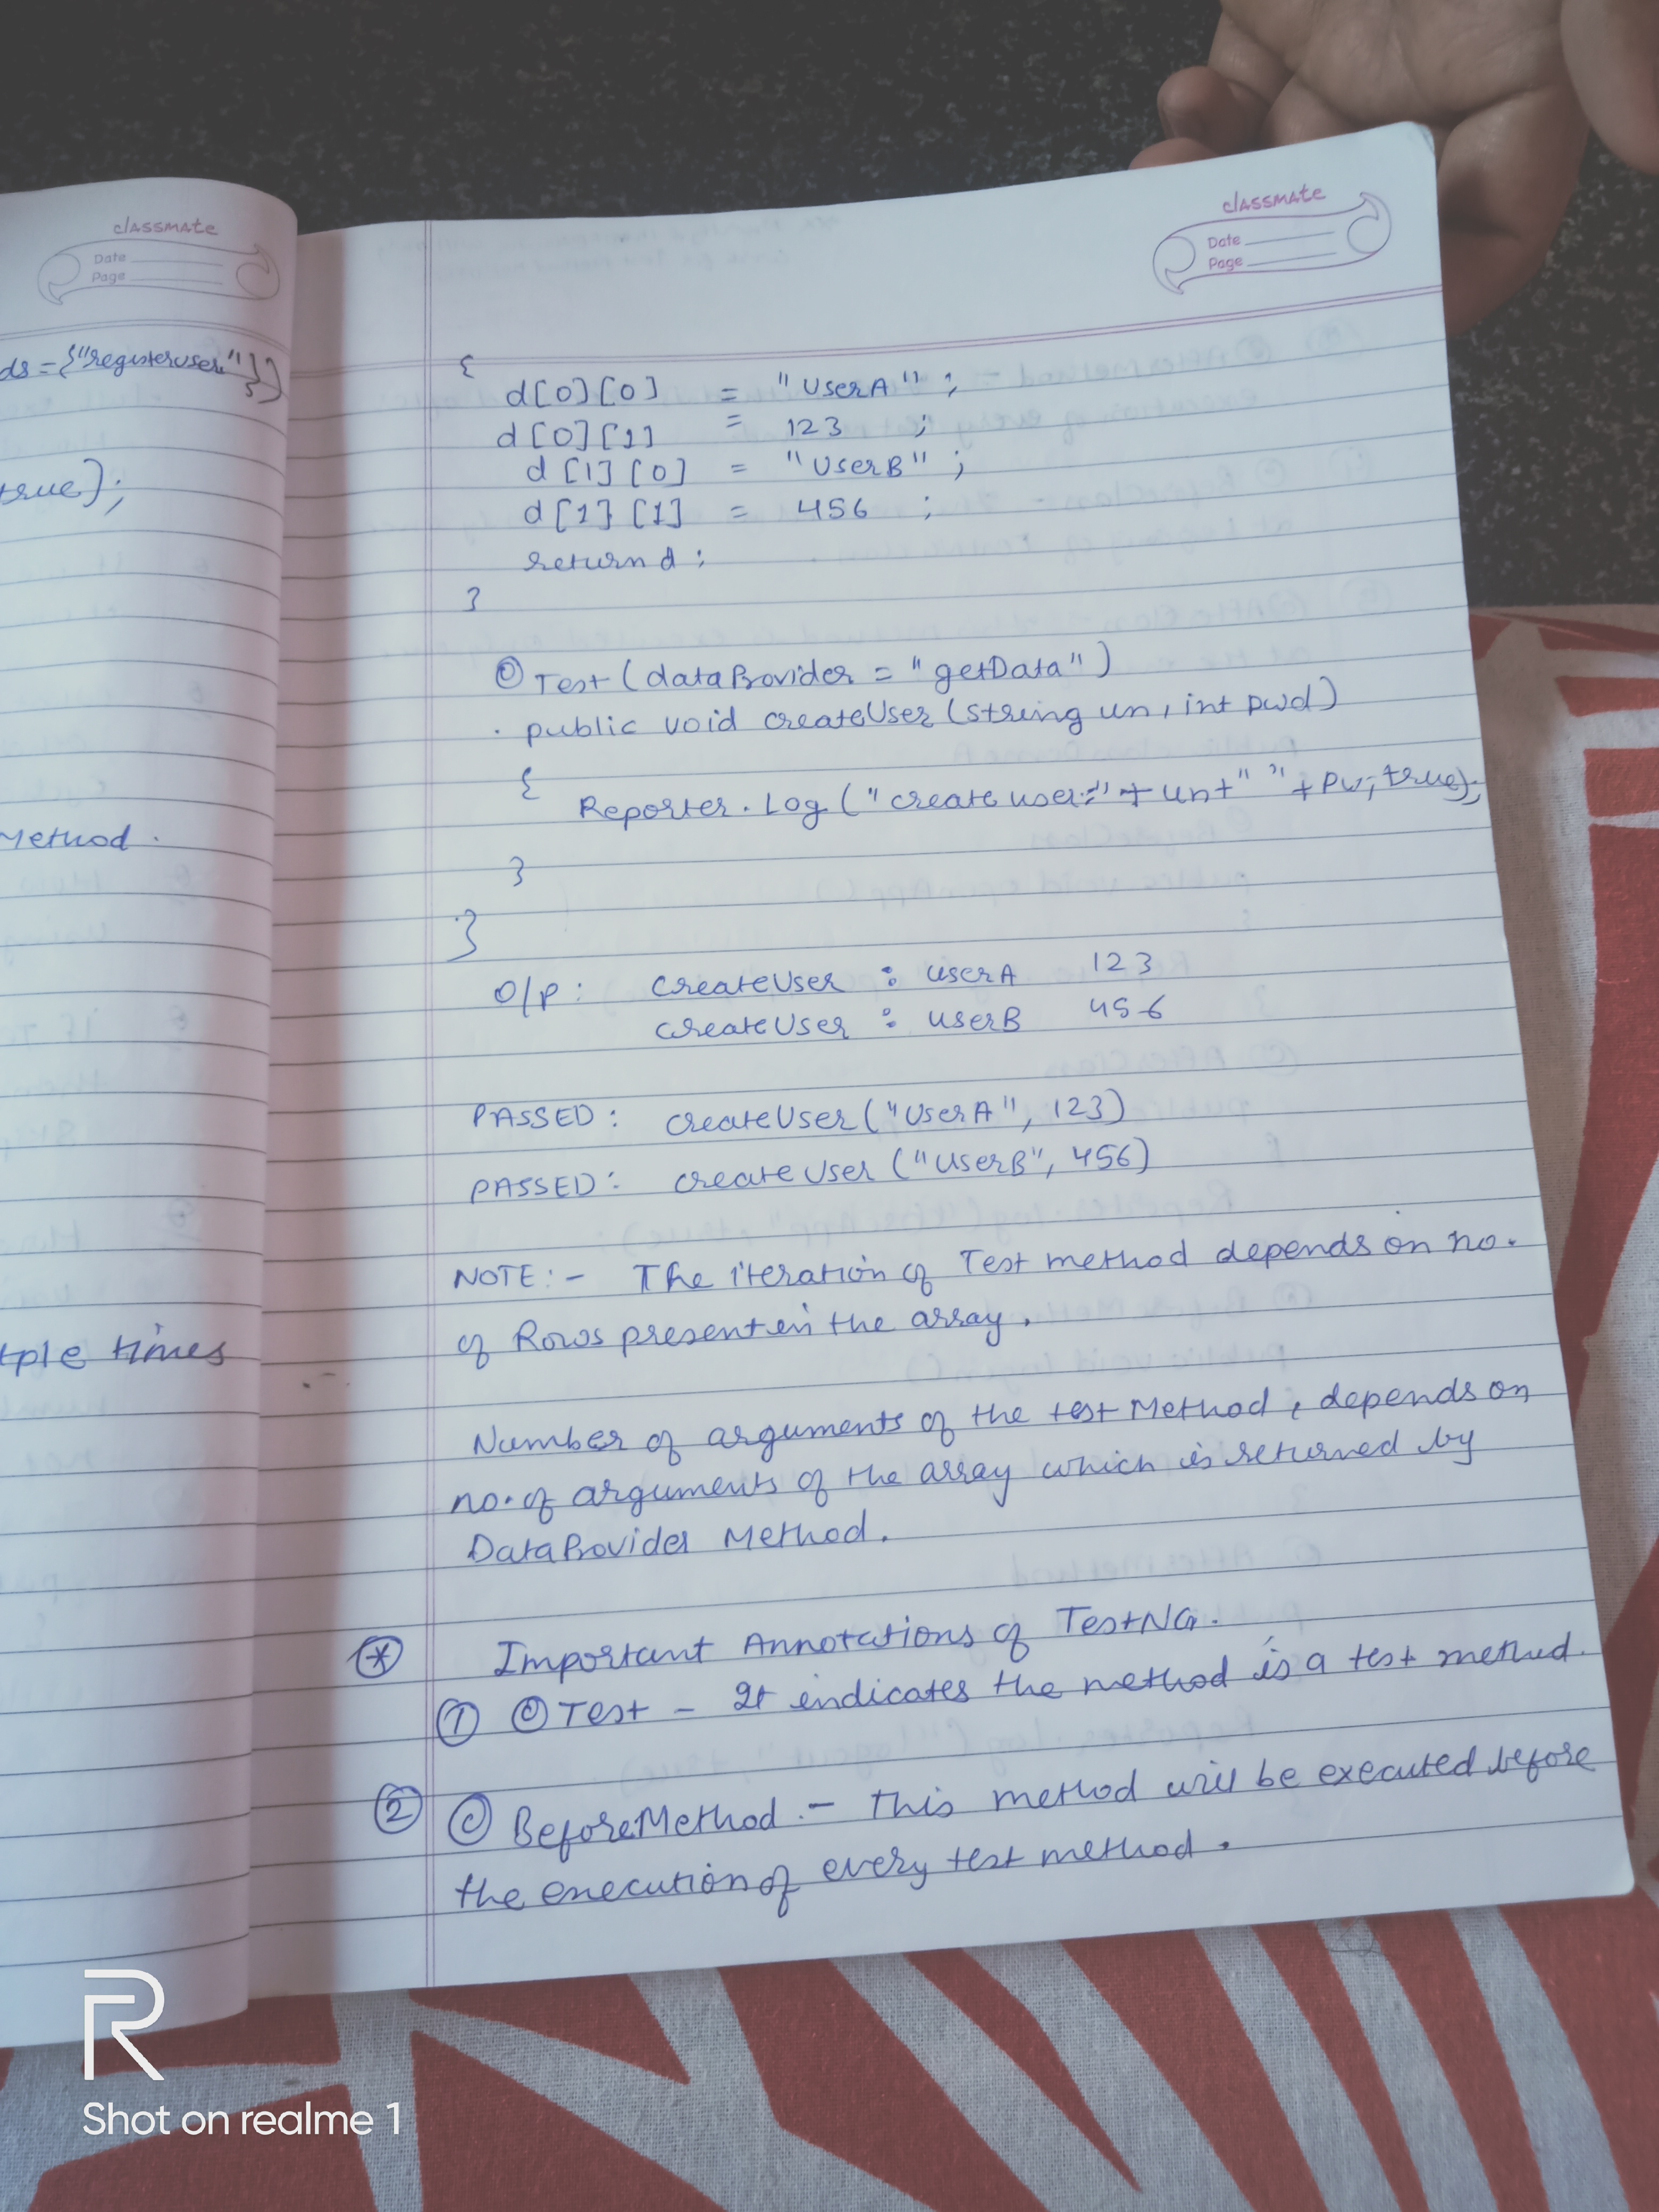 classmate
Date
Page
ds = {"registeruser"})
true);
Method.
tple times
classmate
Date
Page
{
d[0][0] = "UserA";
d[0][1] = 123 ;
d[1][0] = "UserB";
d[1][1] = 456 ;
return d;
}
@Test(dataProvider = "getData")
public void createUser(string un, int pwd)
{
Reporter.Log("create user:" + un+" "+pw, true);
}
}
O/P: CreateUser : userA 123
createUser : userB 456
PASSED: createUser("UserA", 123)
PASSED: createUser("UserB", 456)
NOTE:- The iteration of Test method depends on no.
of Rows present in the array.
Number of arguments of the test Method, depends on
no. of arguments of the array which is returned by
DataProvider Method.
* Important Annotations of TestNG.
① @Test - It indicates the method is a test method.
② @BeforeMethod.- This method will be executed before
the execution of every test method.
R
Shot on realme 1